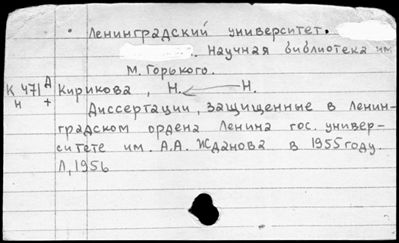 Ленинградский университет.
. Научная библиотека им.
М. Горького.
К 471 Д Кирикова, Н. Н.
н +
Диссертации, защищенные в Ленин-
градском ордена Ленина гос. универ-
ситете им. А.А. Жданова в 1955 году.
Л, 1956